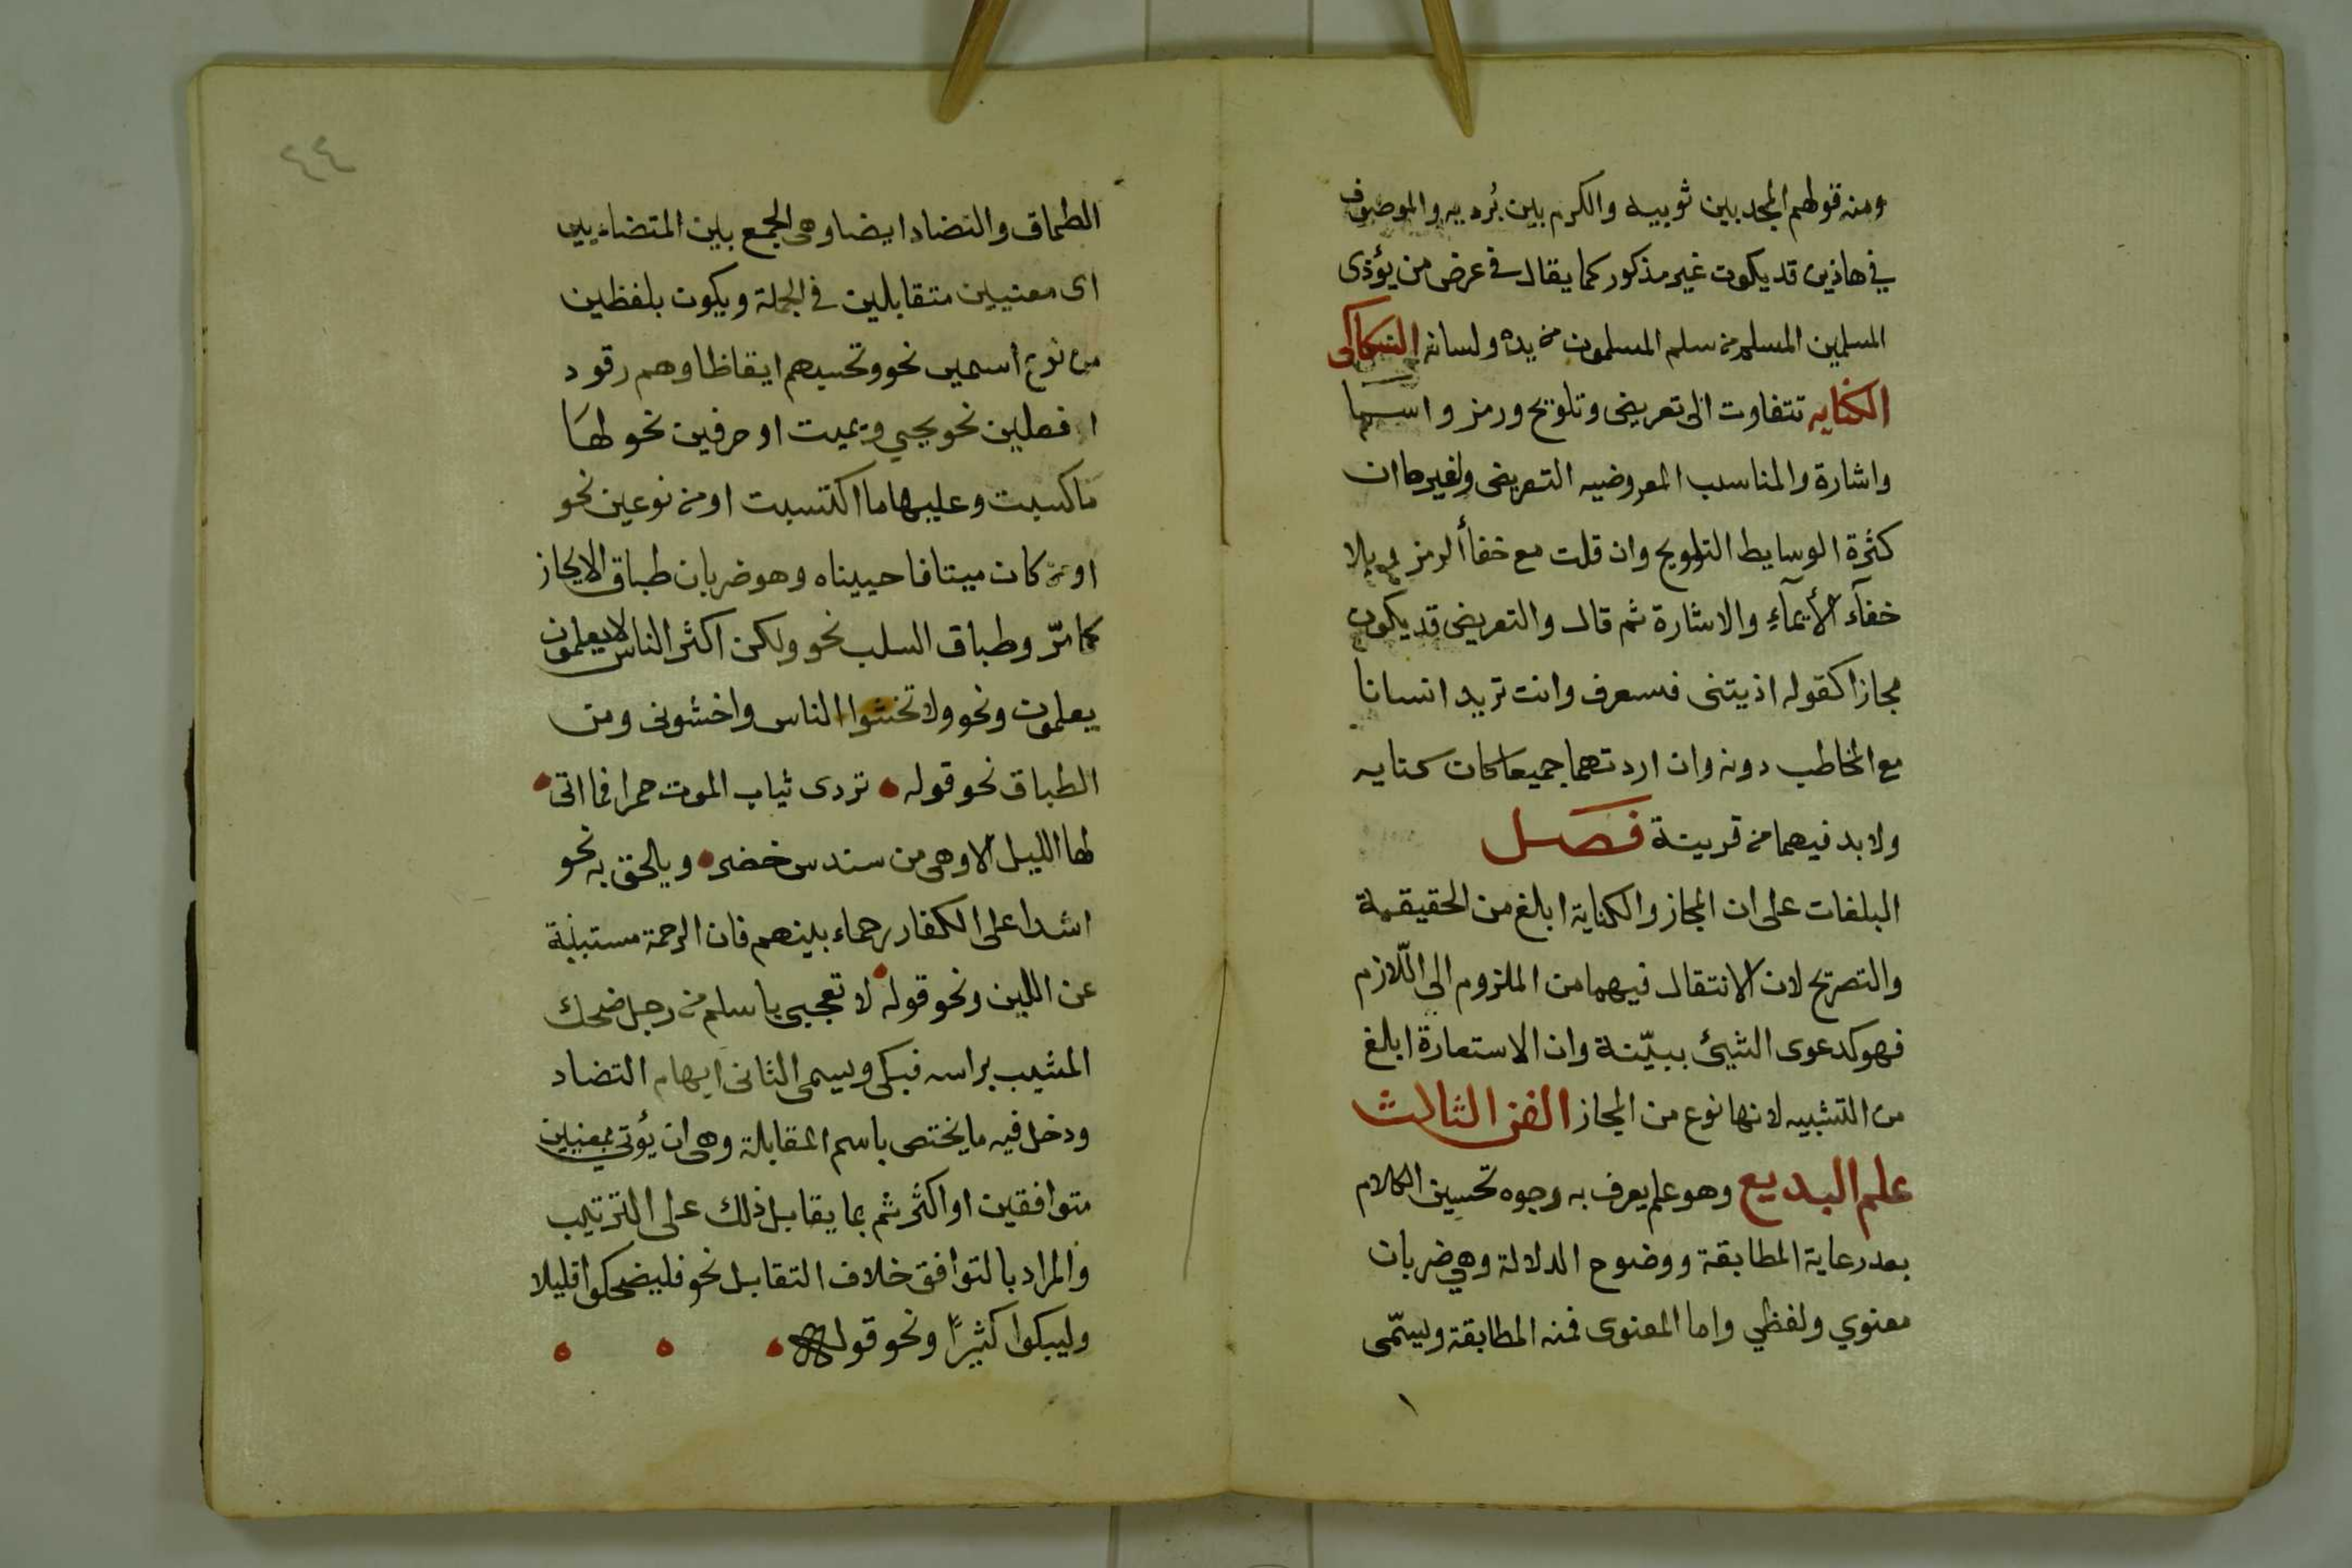 ومنه قولهم المجد بين ثوبيه والكرم بين بُرديه والموصوف
في هاذين قد يكون غير مذكور كما يقال في عرض من يؤذى
المسلمين المسلم من سلم المسلمون من يده ولسانه السكاكى
الكنايه تتفاوت الى تعريض وتلويح ورمز وايما
واشارة والمناسب المعروضيه التعريض ولغيرها ان
كثرة الوسايط التلويح وان قلت مع خفأ الرمز وبلا
خفآء الأيمآء والاشارة ثم قال والتعريض قد يكون
مجازا كقوله اذيتنى فستعرف وانت تريد انسانا
مع المخاطب دونه وان اردتهما جميعا كان كنايه
ولا بد فيهما من قرينة فصل
البلغات على ان المجاز والكناية ابلغ من الحقيقة
والتصريح لان الانتقال فيهما من الملزوم الى اللّازم
فهو كدعوى الشيئ ببيّنة وان الاستعارة ابلغ
من التشبيه لانها نوع من المجاز الفن الثالث
علم البديع وهو علم يعرف به وجوه تحسين الكلام
بعد رعاية المطابقة ووضوح الدلالة وهي ضربان
معنوي ولفظي واما المعنوى فمنه المطابقة ويسمّى
٤٤
الطباق والتضاد ايضا وهى الجمع بين المتضاديين
اى معنيين متقابلين في الجملة ويكون بلفظين
من نوع اسمين نحو وتحسبهم ايقاظا وهم رقود
او فعلين نحو يحيي ويميت او حرفين نحو لها
ما كسبت وعليها ما اكتسبت او من نوعين نحو
او من كان ميتا فاحييناه وهو ضربان طباق الايجاز
كما مرّ وطباق السلب نحو ولكن اكثر الناس لا يعلمون
يعلمون ونحو ولا تخشوا الناس واخشونى ومن
الطباق نحو قوله تردى ثياب الموت حمرا فما اتى
لها الليل الا وهى من سندس خضر ويالحق به نحو
اشدا على الكفار رحماء بينهم فان الرحمة مستبنية
عن اللين ونحو قوله لا تعجبى يا سلم من رجل ضحك
المشيب براسه فبكى ويسمى الثانى ايهام التضاد
ودخل فيه ما يختص باسم المقابلة وهى ان يؤتي بمعنيين
متوافقين او اكثر ثم بما يقابل ذلك على الترتيب
والمراد بالتوافق خلاف التقابل نحو فليضحكوا قليلا
وليبكوا كثيرًا ونحو قوله